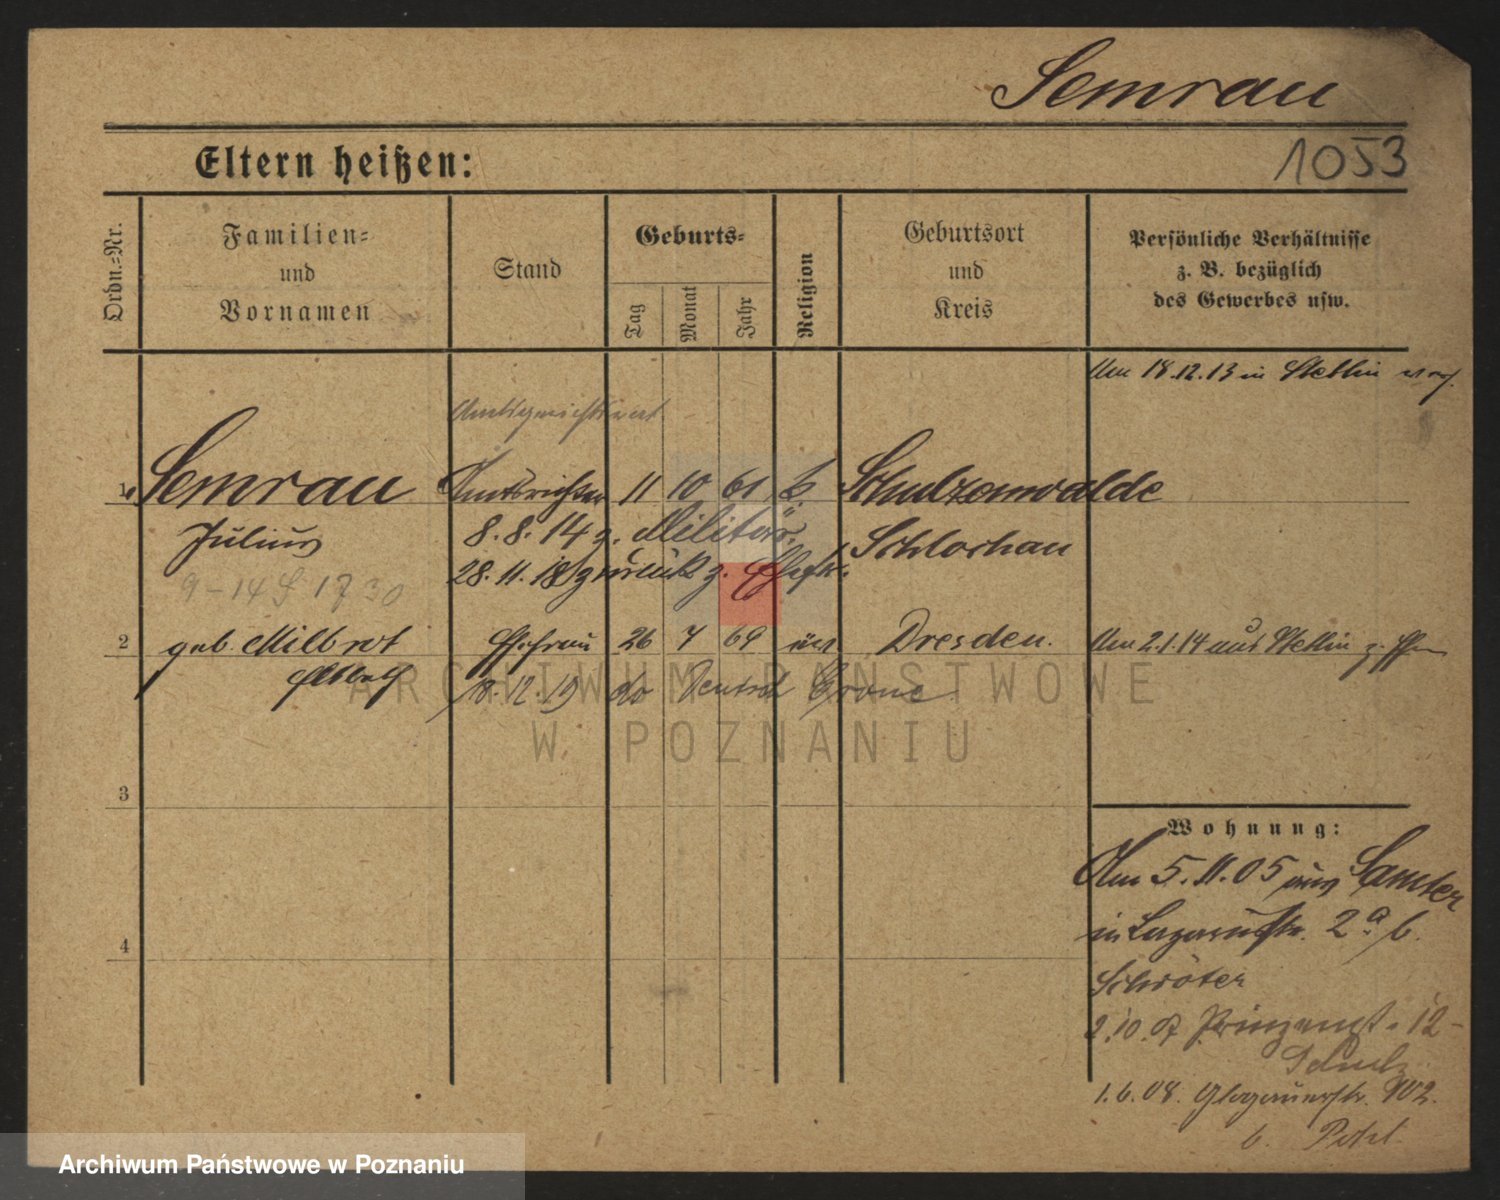 Semrau
Eltern heißen:
1053
Ordn.-Nr.
Familien-
und
Vornamen
Stand
Geburts-
Tag
Monat
Jahr
Religion
Geburtsort
und
Kreis
Persönliche Verhältnisse
z. B. bezüglich
des Gewerbes usw.
Am 18.12.13 in Stettin
Amtsgerichtsrat
1 Semrau Amtsrichter 11 10 61 k. Schulzenwalde
Julius 8.8.14 z. Militär Schlochau
28.11.18 zurück z. Ehefr.
9-14 1730
2 geb. Milbrot Ehefrau 26 7 69 Dresden. Am 2.1.14 aus Stettin z.
18.12.19 do Deutsch Crone
ARCHIWUM PAŃSTWOWE
W POZNANIU
3
Wohnung:
Am 5.11.05 aus Samter
in Lazarusstr. 2a b.
4
Schröter
2.10.07 Prinzenst. 12
Schulz
1.6.08. Glogauerstr. 102.
b.
Archiwum Państwowe w Poznaniu